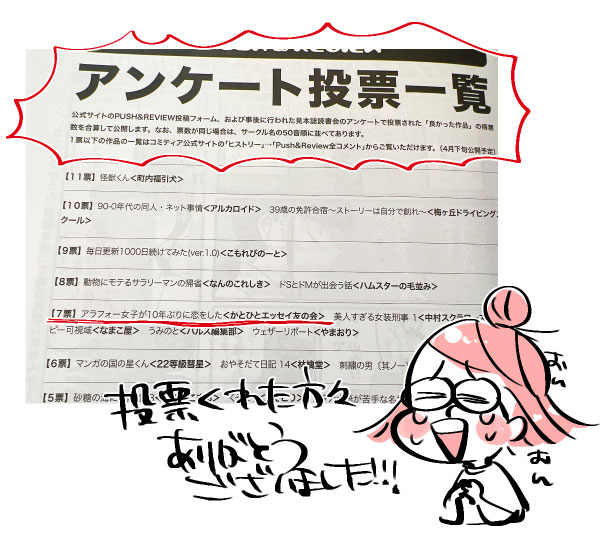 アンケート投票一覧
公式サイトのPUSH&REVIEW投稿フォーム、および事後に行われた見本誌読書会のアンケートで投票された「良かった作品」の得票
数を合算して公開します。なお、票数が同じ場合は、サークル名の50音順に並べてあります。
1票以下の作品の一覧はコミティア公式サイトの「ヒストリー」→「Push&Review全コメント」からご覧いただけます。(4月下旬公開予定)
【11票】怪獣くん<町内福引犬>
【10票】90-0年代の同人・ネット事情<アルカロイド> 39歳の免許合宿〜ストーリーは自分で創れ〜<梅ヶ丘ドライビングス
クール>
【9票】毎日更新1000日続けてみた(ver.1.0)<こもれびのーと>
【8票】動物にモテるサラリーマンの帰省<なんのこれしき> ドSとドMが出会う話<ハムスターの毛並み>
【7票】アラフォー女子が10年ぶりに恋をした<かとひとエッセイ友の会> 美人すぎる女装刑事 1<中村スクラ
ピー可視域<なまこ屋> うみのと<ハルム編集部> ウェザーリポート<やまおり>
【6票】マンガの国の星くん<22等級彗星> おやそだて日記 14<杖檎堂> 刺繍の男〔其ノ一
【5票】砂糖の
が苦手な
投票くれた方々
ありがとう
ございました!!!
おん
おん